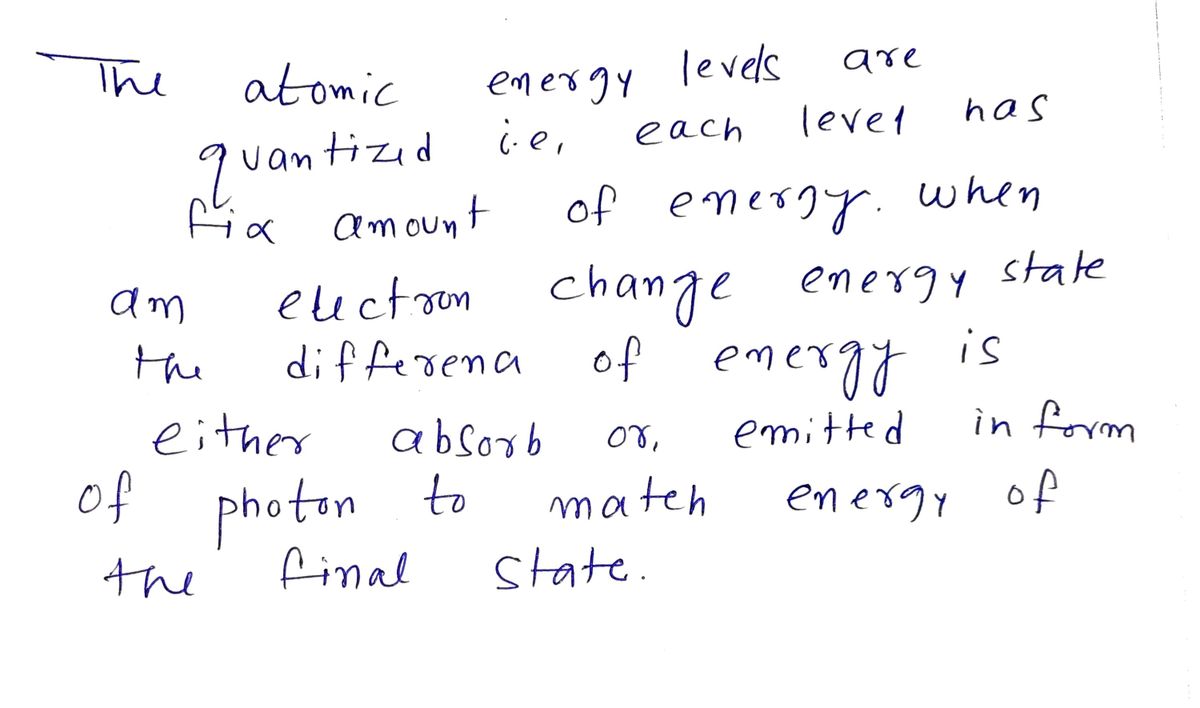 The atomic energy levels are
quantized i.e, each level has
fix amount of energy. when
an electron change energy state
the difference of energy is
either absorb or, emitted in form
of photon to match energy of
the final state.